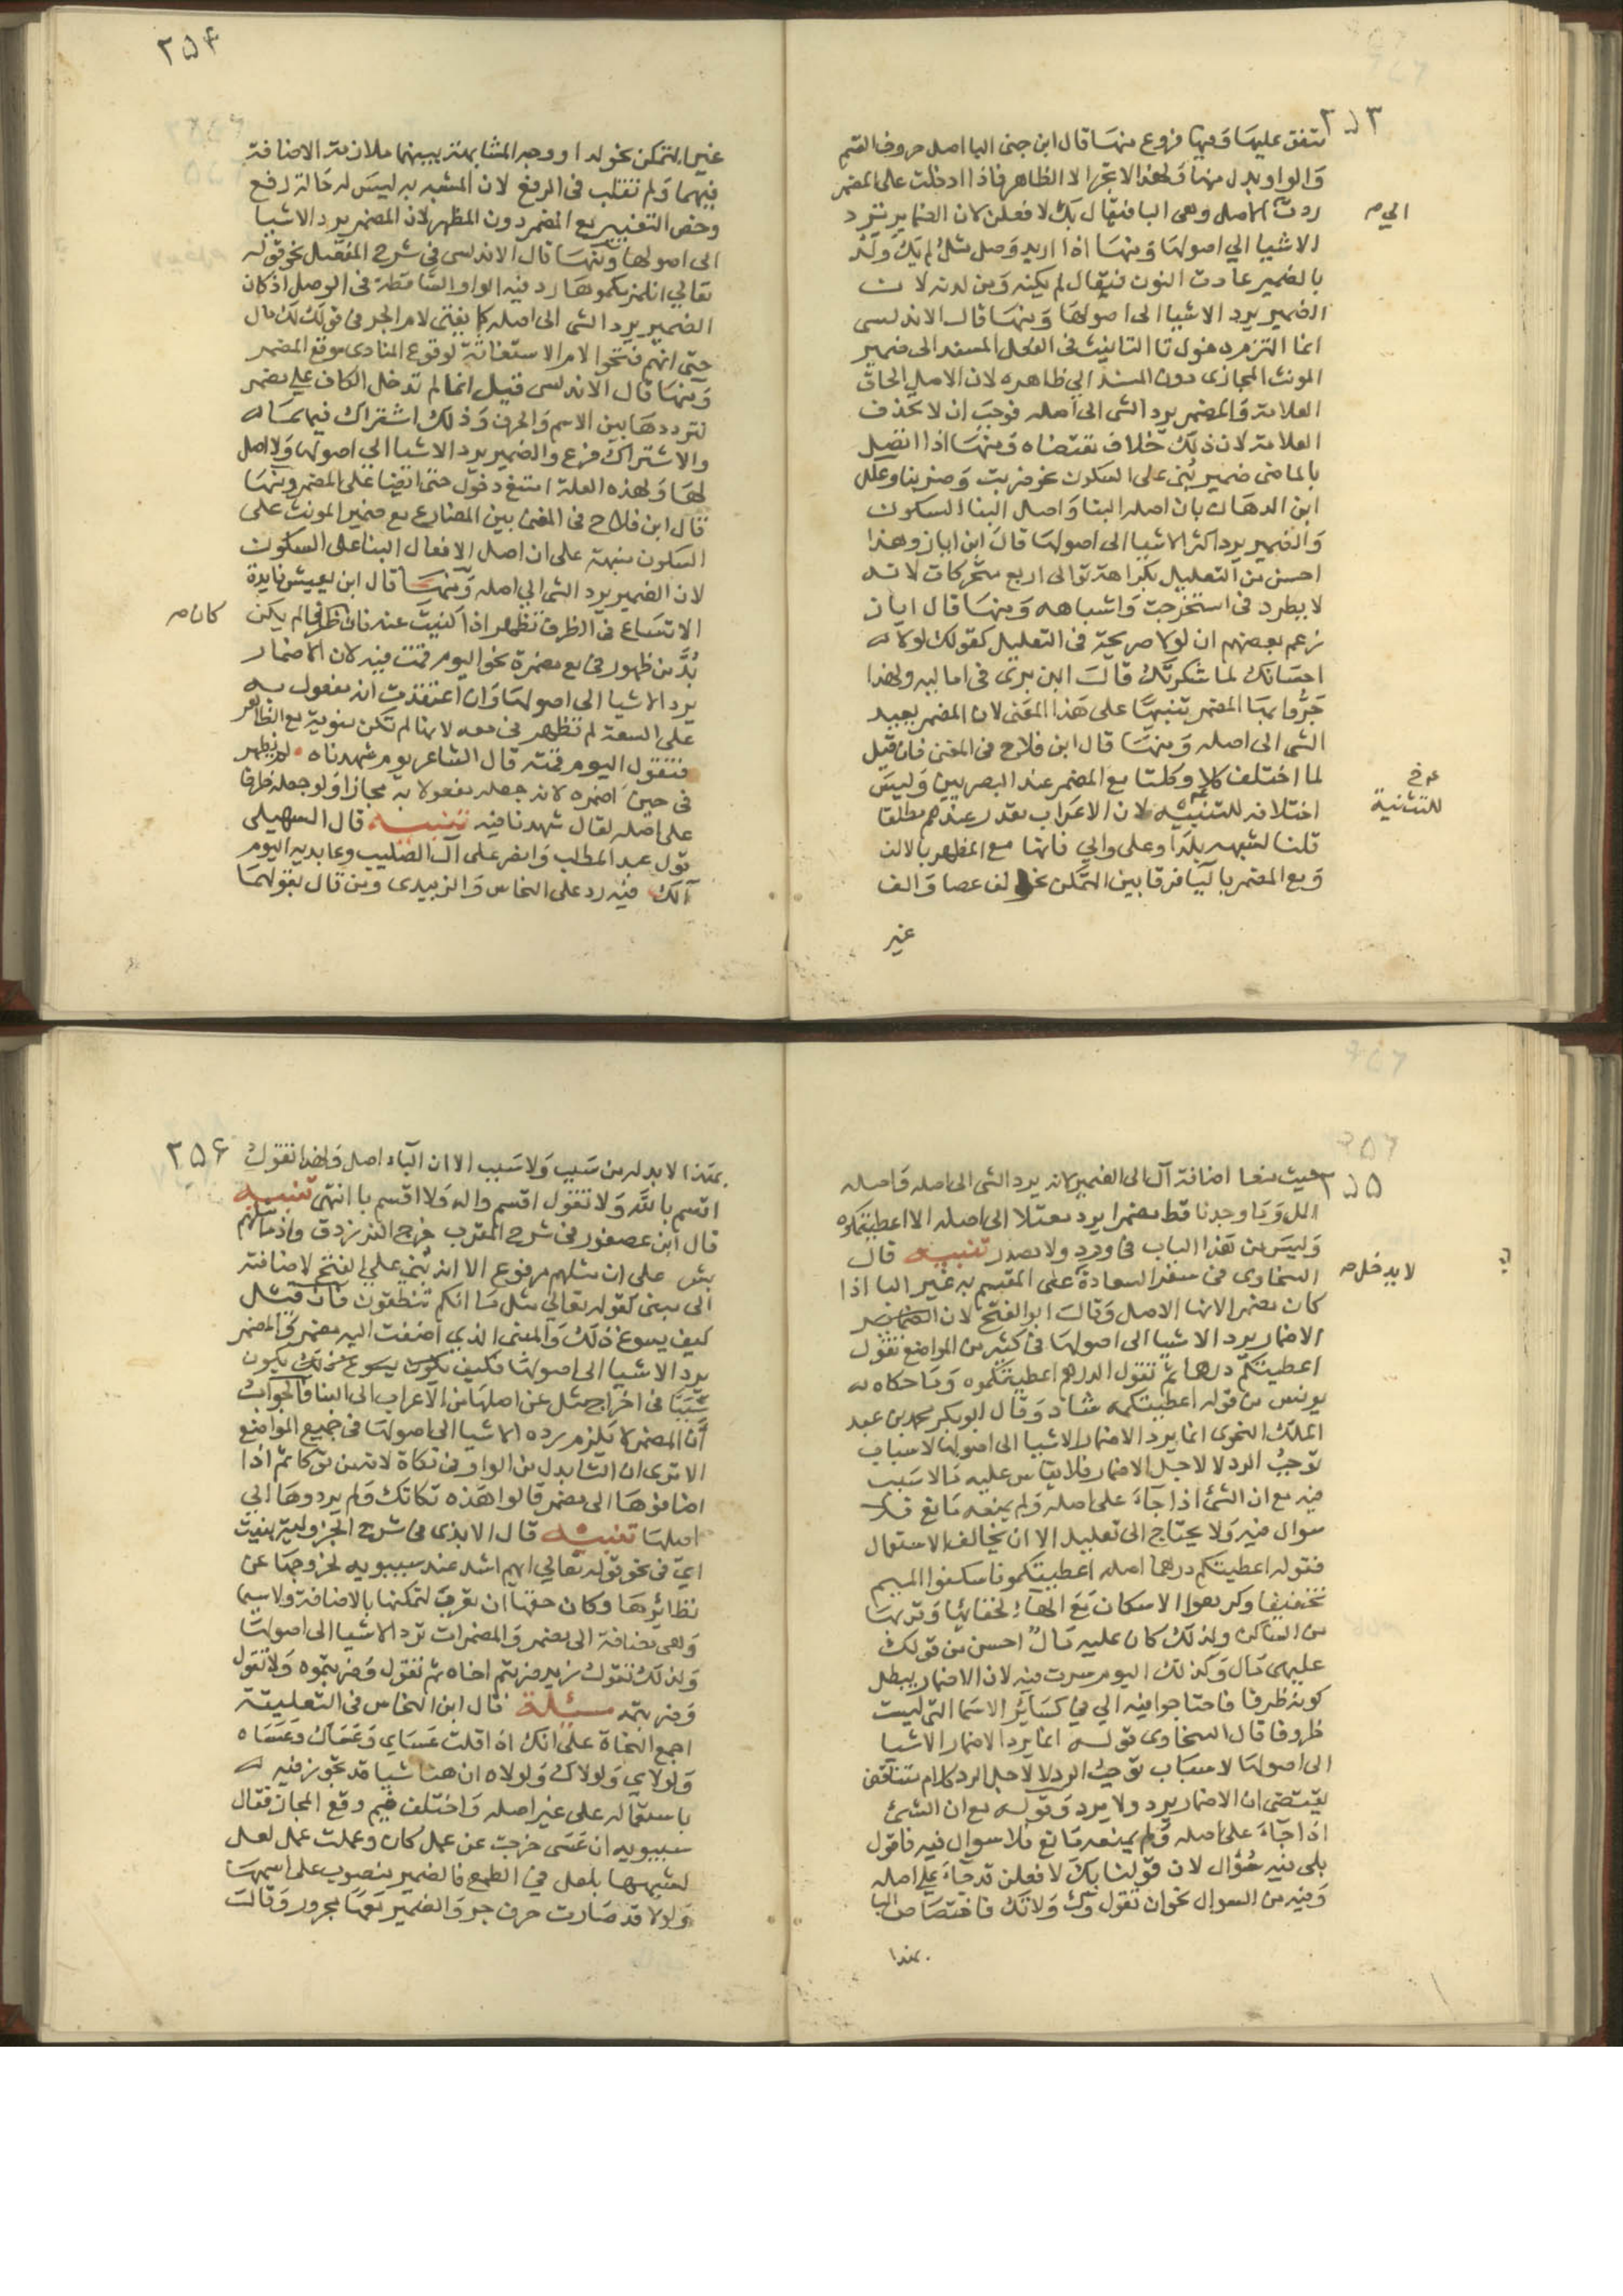 ٢٥٣
متفق عليها وفيها فروع منها قال ابن جنى البا اصل حروف القسم
والواو بدل منها ولهذا لا تجر الا الظاهر فاذا ادخلت على المضمر
ردت الى الاصل وهى البا فيقال بك لافعلن لان الضماير ترد
الى صح
الاشيا الي اصولها ومنها اذا اريد وصل مثل لم يك ولد
بالضمير عادت النون فيقال لم يكنه ومن لدنه لان
الضمير يرد الاشيا الى اصولها ومنها قال الاندلسى
انما التزم دخول تا التانيث فى الفعل المسند الى ضمير
المونث المجازى دون المسند الي ظاهره لان الاصل الحاق
العلامة والمضمر يرد الشى الى اصله فوجب ان لا تحذف
العلامة لان ذلك خلاف مقتضاه ومنها اذا اتصل
بالماضى ضمير بنى على السكون نحو ضربت وضربنا وعلل
ابن الدهان بان اصله البنا واصل البنا السكون
والضمير يرد اكثر الاشيا الى اصولها قال ابن اياز وهذا
احسن من التعليل بكراهة توالى اربع متحركات لانه
لا يطرد فى استخرجت واشباهه ومنها قال اياز
زعم بعضهم ان لولا صريحة فى التعليل كقولك لولا
احسانك لما شكرتك قال ابن برى فى اماليه ولهذا
جروا بها المضمر تنبيها على هذا المعنى لان المضمر يعيد
الشى الى اصله ومنها قال ابن فلاح فى المغنى فان قيل
لما اختلف كلا وكلتا مع المضمر عند البصريين وليس
اختلافه للتثنيه لان الاعراب مقدر عندهم مطلقا
للتثنية
قلنا لشبهه بلدا وعلى والي فانها مع المظهر بالالف
ومع المضمر باليا فرقا بين المتمكن نحو الف عصا والف
غير
٢٥٤
غير المتمكن نحو لدا ووجه المشابهة بينهما ملازمة الاضافة
فيهما ولم تقلب فى الرفع لان المشبه به ليس له حالة رفع
وخص التغيير مع المضمر دون المظهر لان المضمر يرد الاشيا
الى اصولها ومنها قال الاندلسى فى شرح المفصل نحو قوله
تعالي انلزمكموها رد فيه الواو الساقطة فى الوصل اذ كان
الضمير يرد الشى الى اصله كما يفتى لام الجر فى قولك لك مال
حتى انهم فتحوا لام الاستغاثة لوقوع المنادى موقع المضمر
ومنها قال الاندلسى قيل انما لم تدخل الكاف علي مضمر
لترددها بين الاسم والحرف وذلك اشتراك فيهما
والاشتراك فرع والضمير يرد الاشيا الي اصولها ولا اصل
لها ولهذه العلة امتنع دخول حتى ايضا على المضمر ومنها
قال ابن فلاح فى المغنى بين المضارع مع ضمير المونث على
السكون منبهة على ان اصل الافعال البنا على السكون
لان الضمير يرد الشى الي اصله ومنها قال ابن يعيش فايدة
الاتساع فى الظرف تظهر اذا كنيت عنه فان ظرفا لم يكن
كان صح
بد من ظهور فى مع مضمره نحو اليوم قمت فيه لان الاضمار
يرد الاشيا الى اصولها وان اعتقدت انه مفعول به
على السعة لم تظهر فى معه لانها لم تكن منوية مع الظاهر
فتقول اليوم قمته قال الشاعر يوم شهدناه لم يظهر
فى حين اضمره لانه جعله مفعولا به مجازا ولو جعله ظرفا
على اصله لقال شهدنا فيه تنبيه قال السهيلى
قول عبد المطلب وانصر على آل الصليب وعابديه اليوم
آلك فيه رد على النحاس والزبيدى ومن قال بقولهما
٢٥٥
حيث منعا اضافة آل الى الضمير لانه يرد الشى الى اصله واصله
اهل وما وجدنا قط مضمرا يرد معتلا الى اصله الا اعطيتكموه
وليس من هذا الباب فى ورد ولا صدر تنبيه قال
السخاوى فى سفر السعادة على المقسم به غير البا اذا
لا يدخل صح
كان مضمرا لانها الاصل وقال ابو الفتح لان
الاضمار يرد الاشيا الى اصولها فى كثير من المواضع تقول
اعطيتكم درهما ثم تقول الدرهم اعطيتكموه وما حكاه
يونس من قوله اعطيتكمه شاذ وقال ابو بكر محمد بن عبد
الملك النحوى انما يرد الاضمار الاشيا الى اصولها لاسباب
توجب الرد لا لاجل الاضمار فلا يقاس عليه ما لا سبب
فيه مع ان الشى اذا جآء على اصله ولم يمنعه مانع فلا
سوال فيه ولا يحتاج الى تعليل الا ان يخالف الاستعمال
فقوله اعطيتكم درهما اصله اعطيتكمو فاسكنوا الميم
تخفيفا وكرهوا الاسكان مع الهآء لخفائها وقربها
من الساكن ولذلك كان عليه مال احسن من قولك
عليهى مال وكذلك اليوم سرت فيه لان الاضمار يبطل
كونه ظرفا فاحتاجوا فيه الي فى كسائر الاسما التى ليست
ظروفا قال السخاوى قوله انما يرد الاضمار الاشيا
الى اصولها لاسباب توجب الرد لا لاجل الرد كلام متناقض
يقتضى ان الاضمار يرد ولا يرد وقوله مع ان الشى
اذا جآء على اصله ولم يمنعه مانع فلا سوال فيه فاقول
بلى فيه سوال لان قولنا بك لافعلن قد جآء علي اصله
وفيه من السوال نحو ان تقول وك ولا تك فاختصاص البا
بهذا
٢٥٦
بهذا لا بد له من سبب ولا سبب الا ان الباء اصل ولهذا تقول
اقسم بالله ولا تقول اقسم والله ولا اقسم با انتهى تنبيه
قال ابن عصفور فى شرح المقرب خرج الفرزدق واذ ما مثلهم
بشر على ان مثلهم مرفوع الا انه بنى علي الفتح لاضافته
الى مبنى كقوله تعالي مثل ما انكم تنطقون فان قيل
كيف يسوغ ذلك والمبنى الذي اضفت اليه مضمر والمضمر
يرد الاشيا الى اصولها فكيف يكون
سببا فى اخراج مثل عن اصلها من الاعراب الى البنا فالجواب
ان المضمر لا يلزم رده الاشيا الى اصولها فى جميع المواضع
الا ترى ان التا بدل من الواو فى تكاة لانه من توكات ثم اذا
اضافوها الى مضمر قالوا هذه تكاتك ولم يردوها الي
اصلها تنبيه قال الابذى فى شرح الجزولية بنيت
اي فى نحو قوله تعالي ايهم اشد عند سيبويه لخروجها عن
نظائرها وكان حقها ان تعرب لتمكنها بالاضافة ولا سيما
وهى مضافة الى مضمر والمضمرات ترد الاشيا الى اصولها
ولذلك تقول زيد ضربتم اخاه ثم تقول وضربتموه ولا تقول
وضربتمه مسئلة قال ابن النحاس فى التعليقة
اجمع النحاة على انك اذا قلت عساي وعساك وعساه
ولولاي ولولاك ولولاه ان هنا شيا قد تجوز فيه
باستعماله على غير اصله واختلف فيم وقع المجاز فقال
سيبويه ان عسى خرجت عن عمل كان وعملت عمل لعل
لشبهها بلعل في الطمع فالضمير منصوب على اسمها
ولولا قد صارت حرف جر والضمير معها مجرور وقال